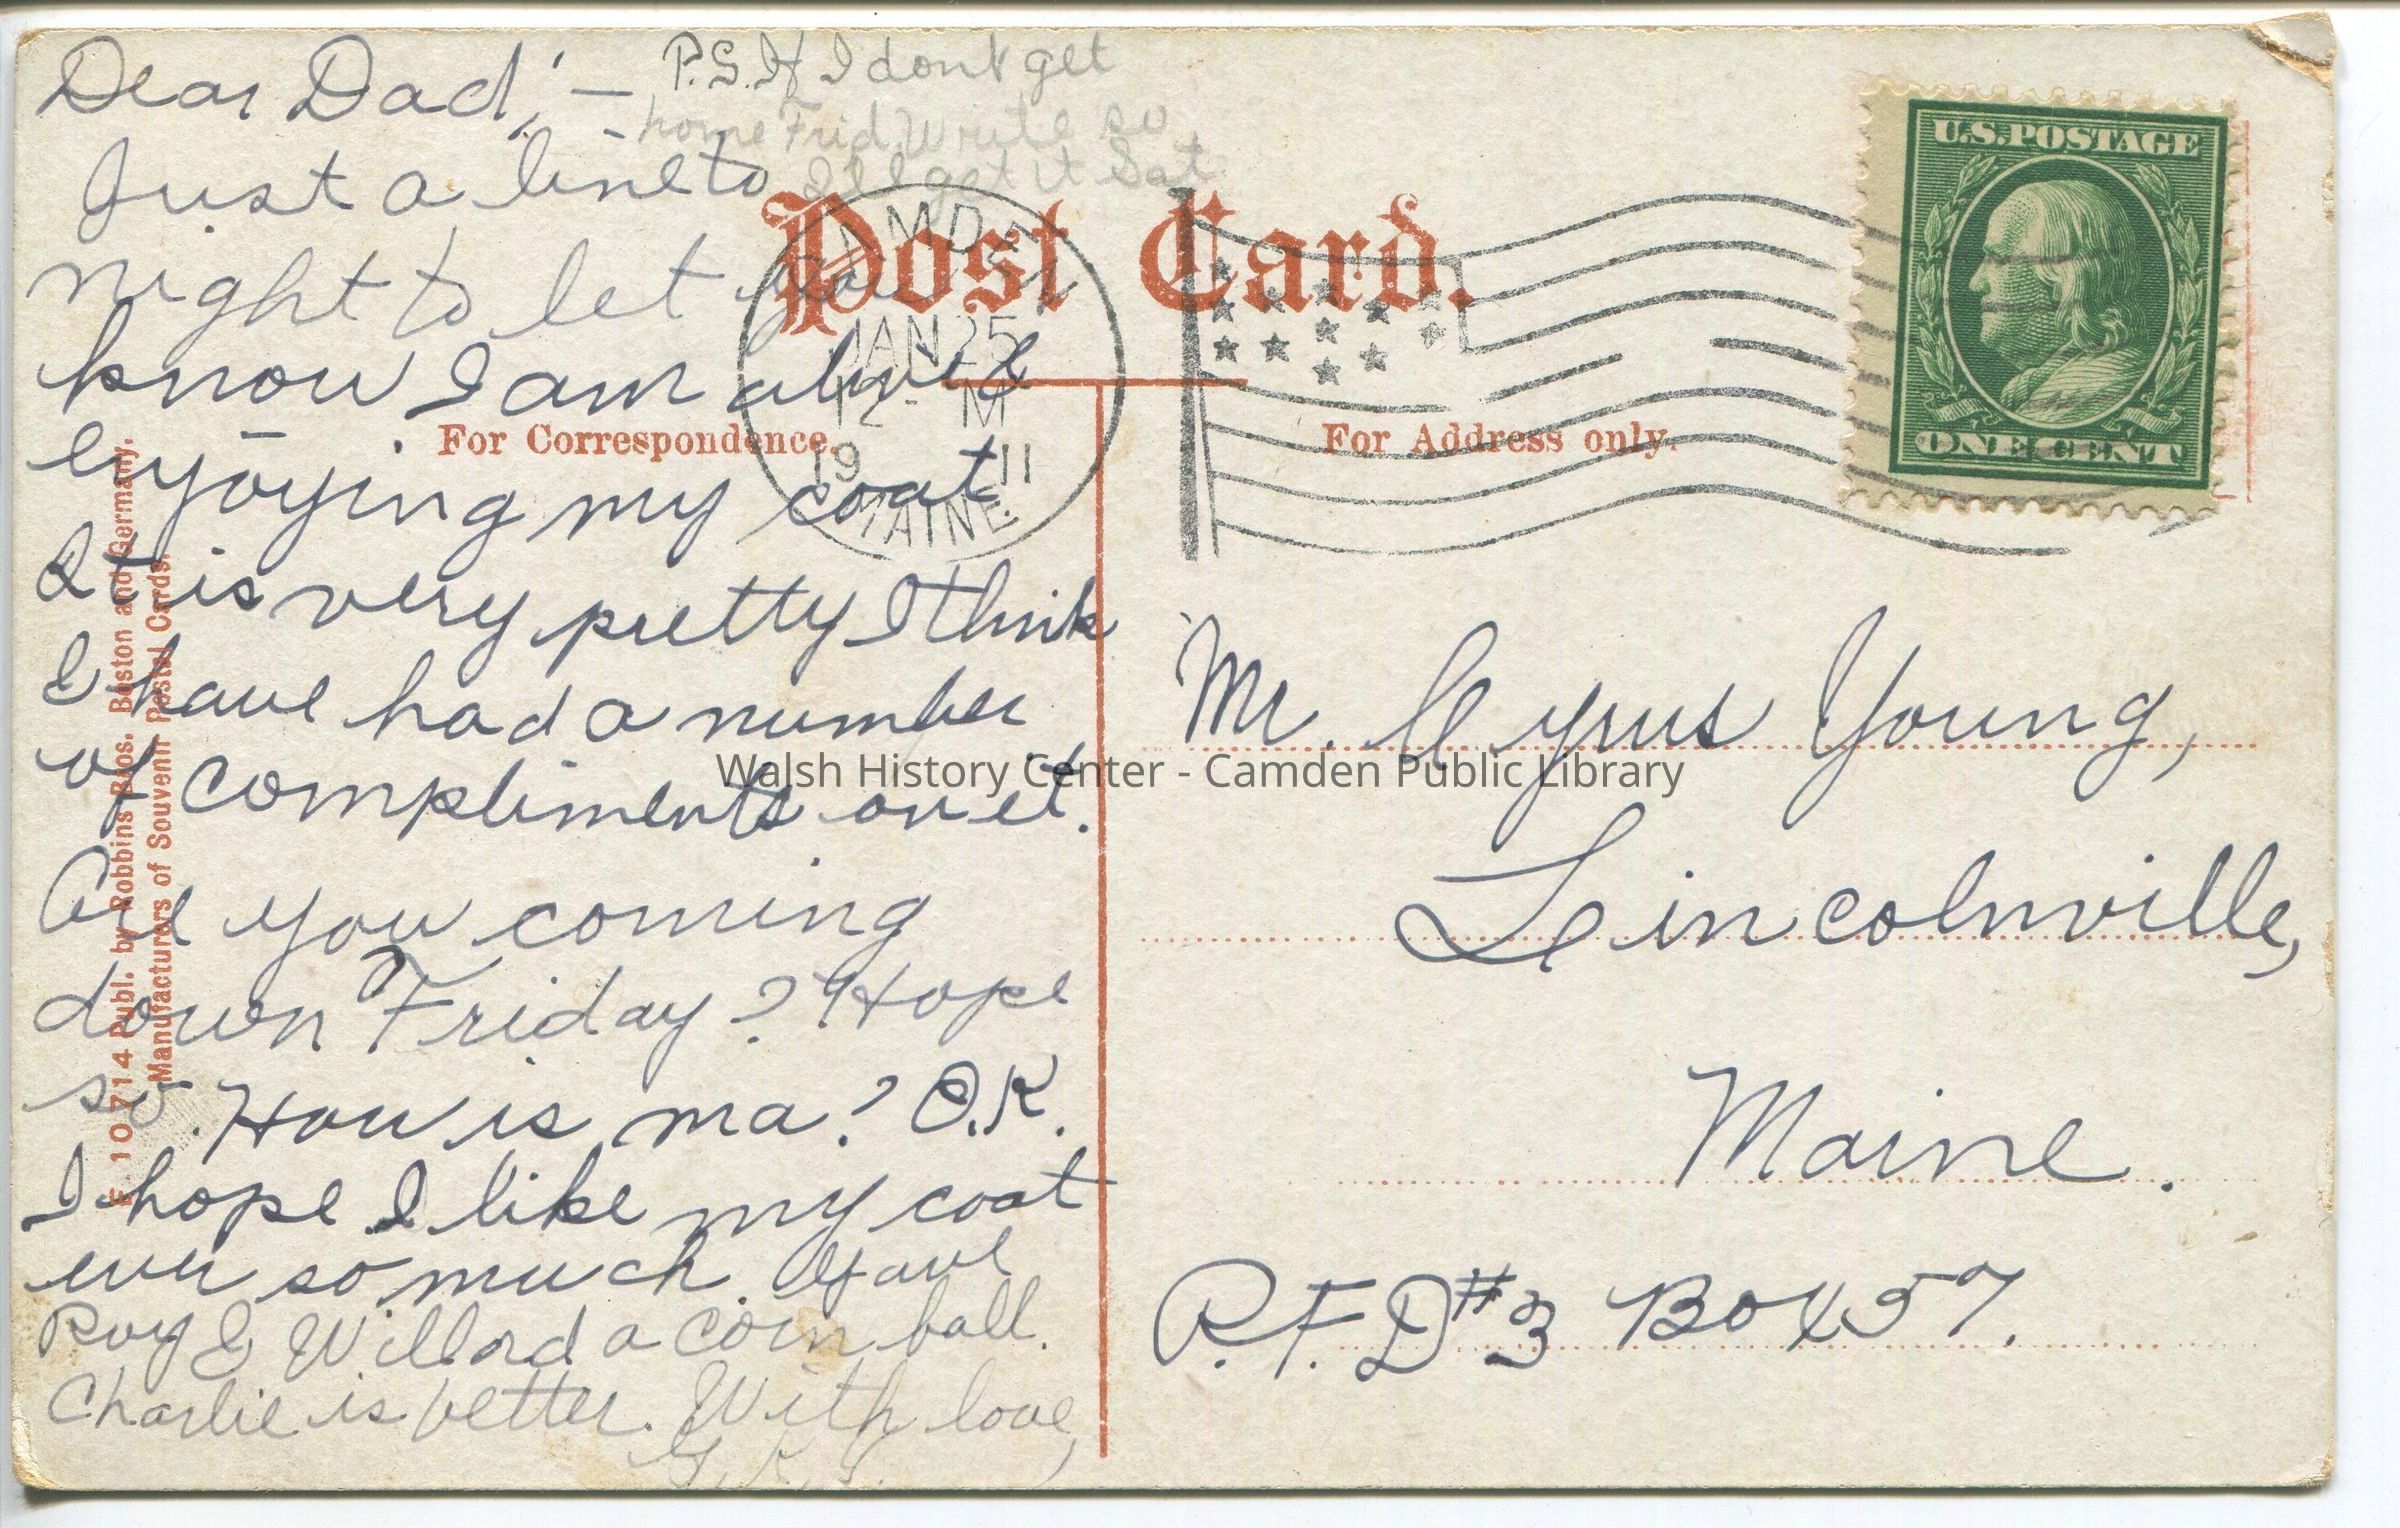 Dear Dad,—
Just a line to
night to let you
know I am alive &
enjoying my coat.
It is very pretty I think
I have had a number
of compliments on it.
Are you coming
down Friday? Hope
so. How is ma? O.K.
I hope I like my coat
ever so much. Gave
Roy & Willard a corn ball.
Charlie is better. With love,
P.S. If I dont get
home Frid. Write so
I'll get it Sat.
Post Card.
For Correspondence.
For Address only.
JAN 25
12 - M
19 11
MAINE
U.S. POSTAGE
ONE CENT
Mr. Cyrus Young,
Lincolnville,
Maine.
R.F.D #3 Box 57.
Walsh History Center - Camden Public Library
F. 10 714 Publ. by Robbins Bros. Boston and Germany.
Manufacturers of Souvenir Postal Cards.